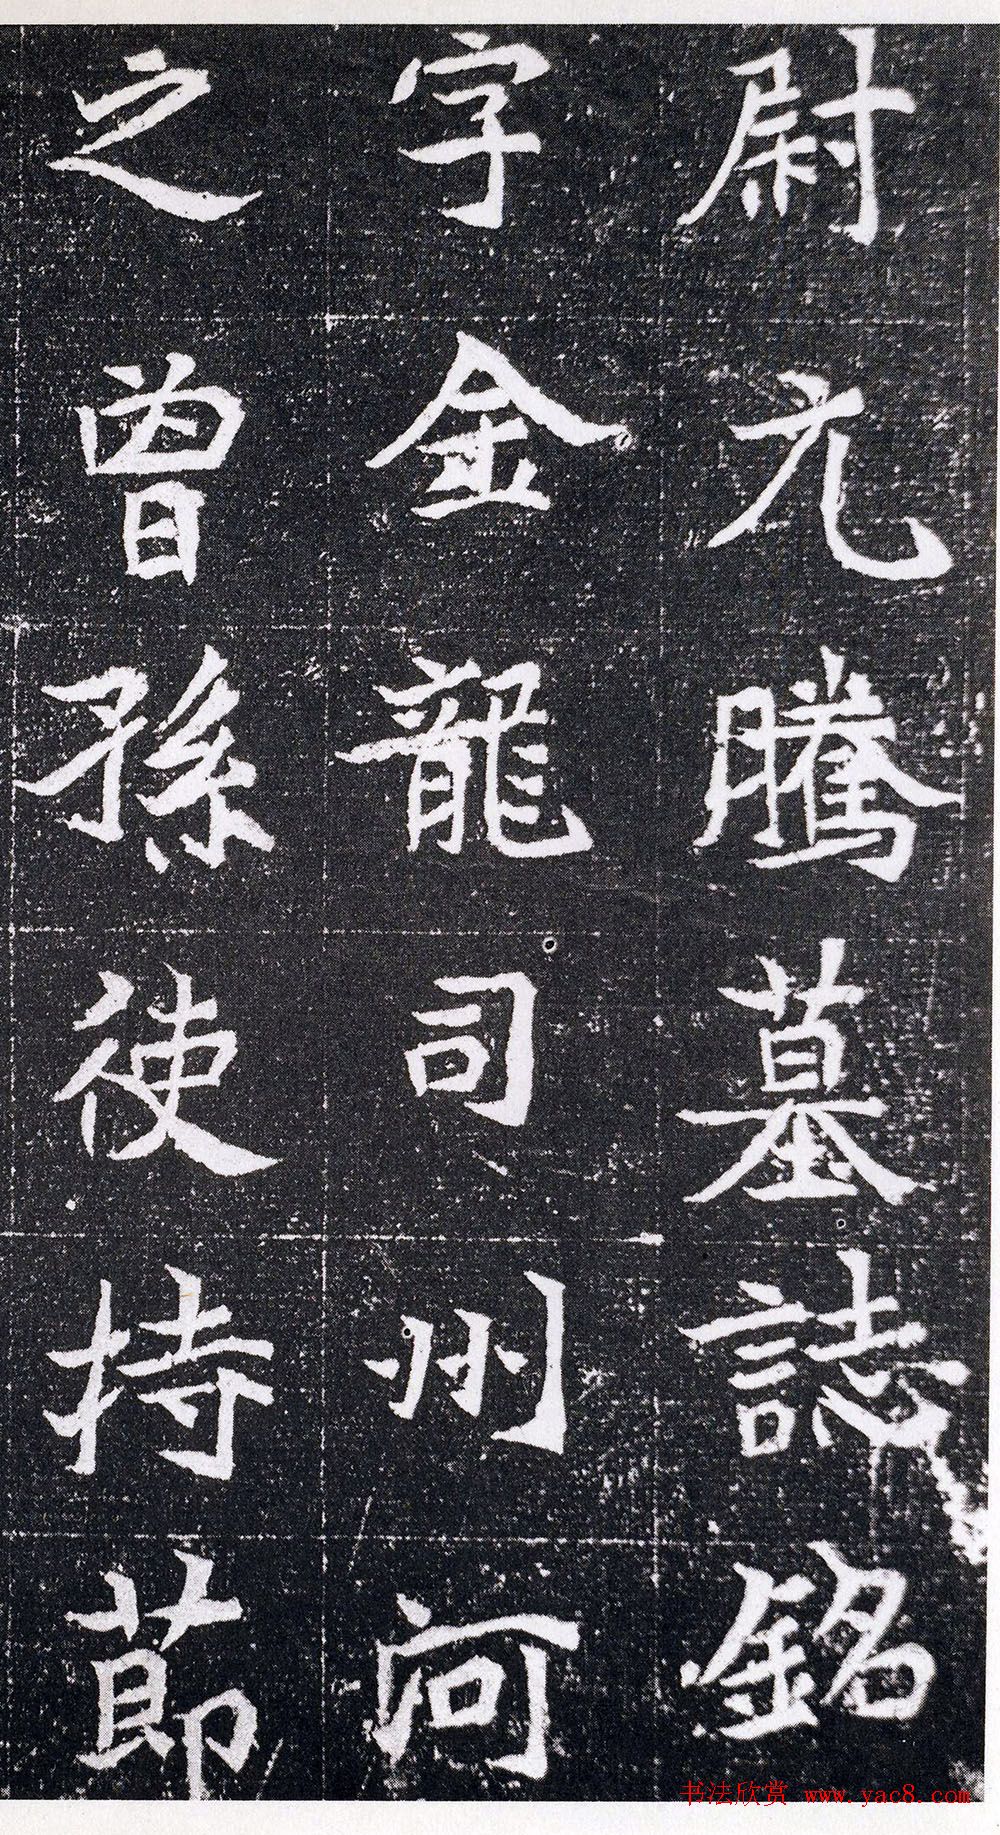 尉元騰墓誌銘
字金龍司州河
之曾孫使持節
书法欣赏 www.yac8.com